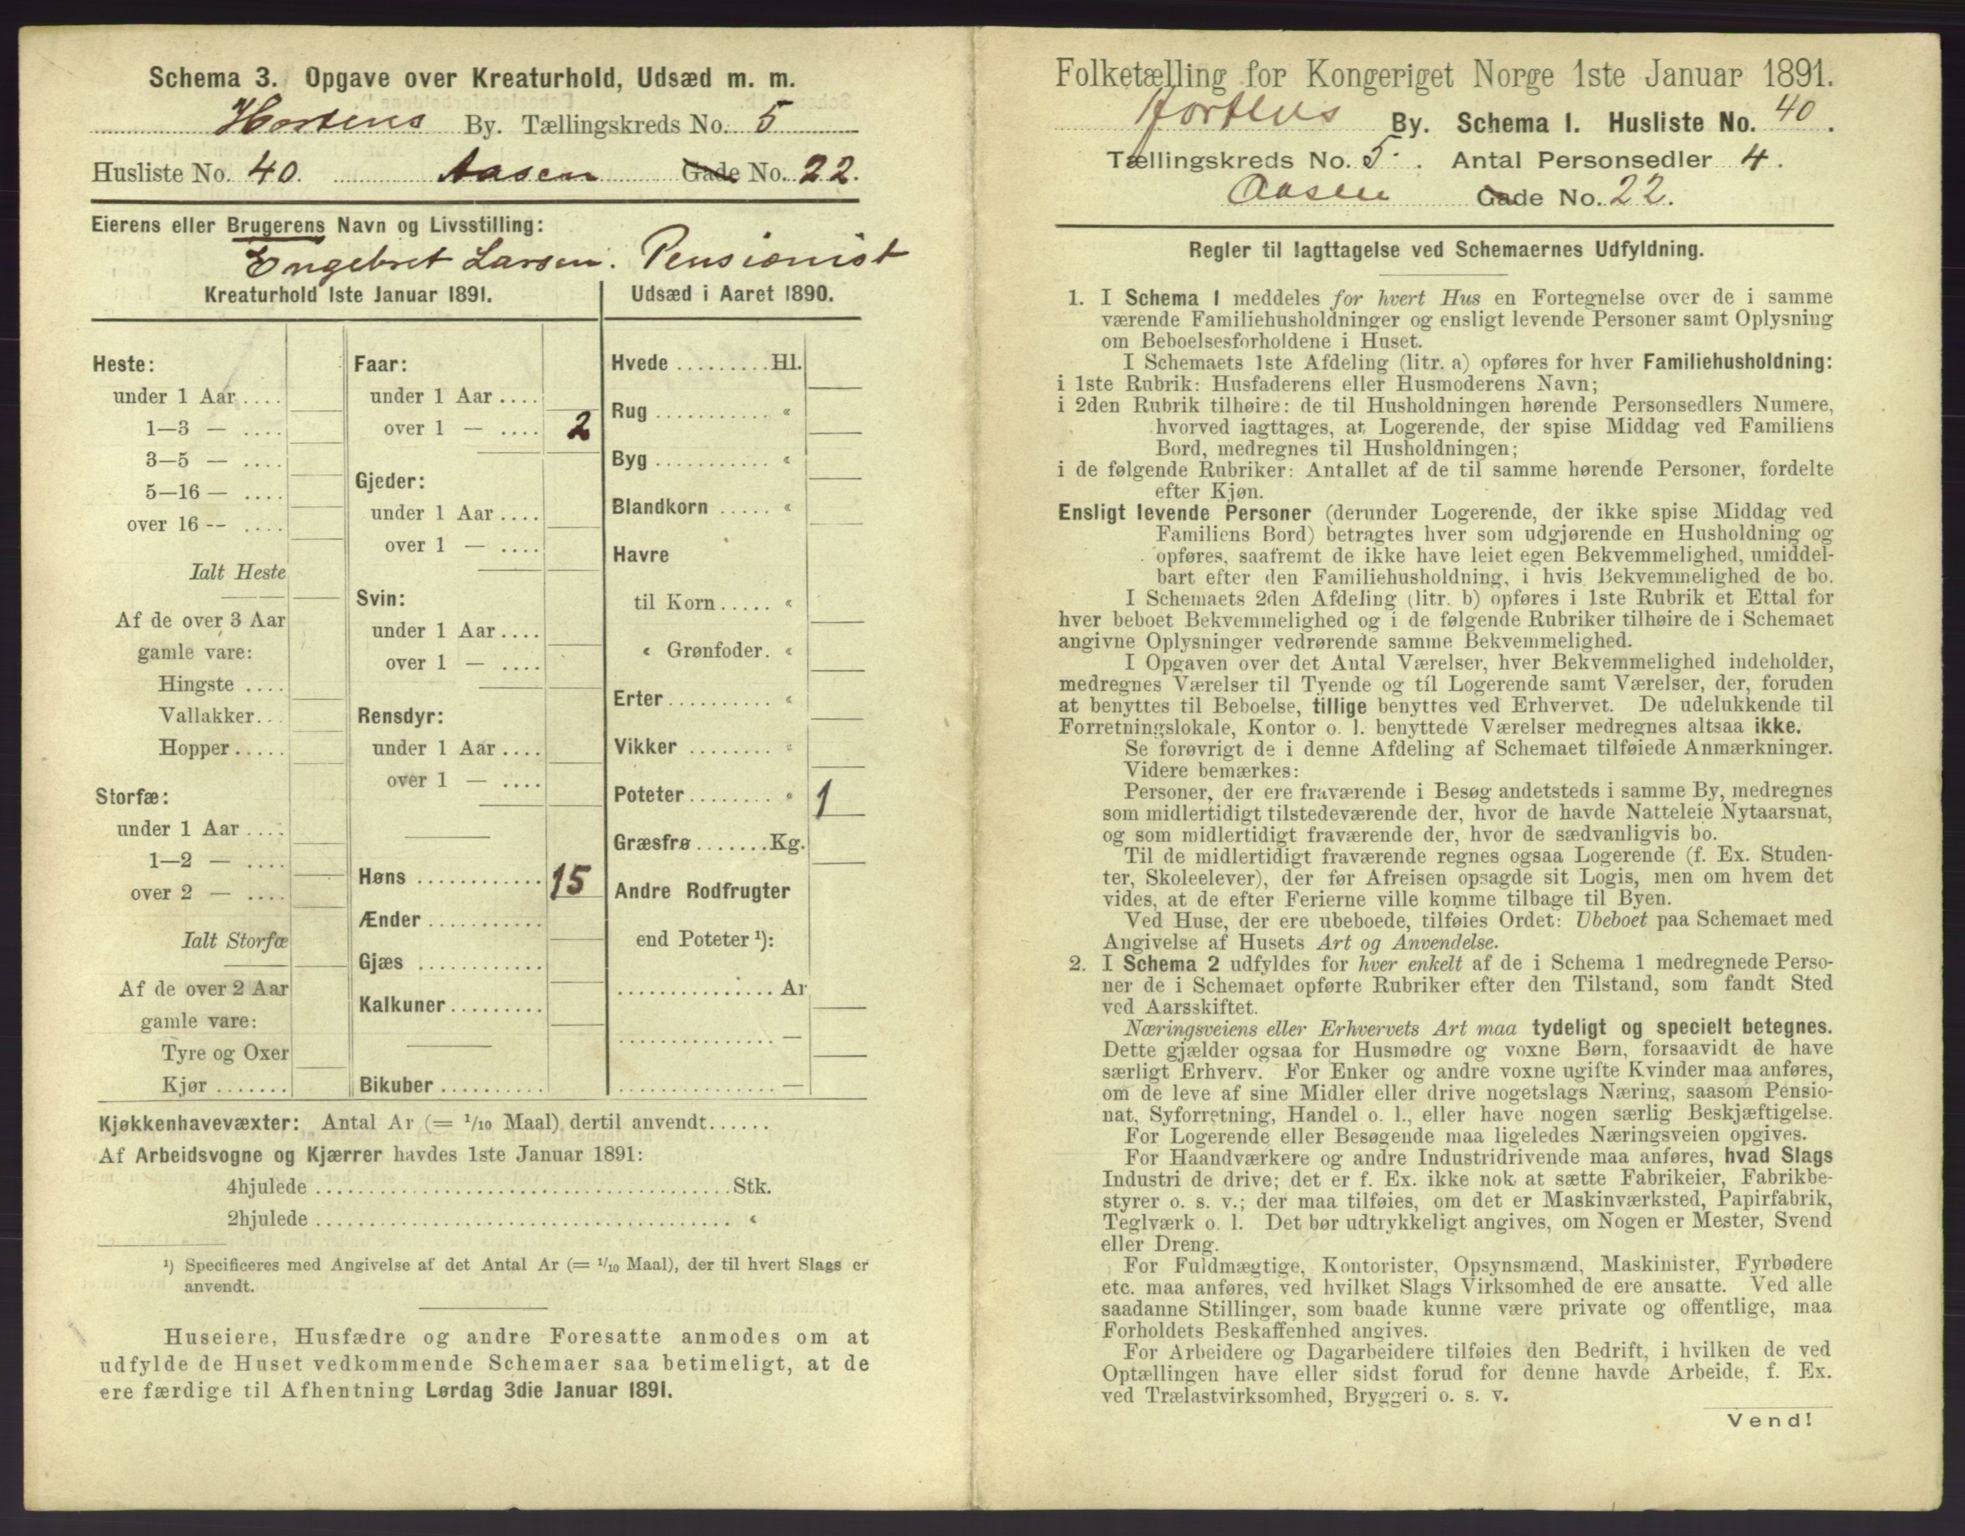 Schema 3. Opgave over Kreaturhold, Udsæd m. m.
Hortens By. Tællingskreds No. 5
Husliste No. 40. Aasen Gade No. 22.
Eierens eller Brugerens Navn og Livsstilling:
Engebret Larsen. Pensionist
Kreaturhold 1ste Januar 1891.
Heste:
under 1 Aar ....
1—3 — ....
3—5 — ....
5—16 — ....
over 16 -- ....
Ialt Heste
Af de over 3 Aar
gamle vare:
Hingste ....
Vallakker...
Hopper.....
Storfæ:
under 1 Aar ....
1—2 — ....
over 2 — ....
Ialt Storfæ
Af de over 2 Aar
gamle vare:
Tyre og Oxer
Kjør .......
Faar:
under 1 Aar ....
over 1 — .... 2
Gjeder:
under 1 Aar ....
over 1 — ....
Svin:
under 1 Aar ....
over 1 — ....
Rensdyr:
under 1 Aar ....
over 1 — ....
Høns ............ 15
Ænder ...........
Gjæs ............
Kalkuner .........
Bikuber ..........
Udsæd i Aaret 1890.
Hvede ......... Hl.
Rug ........... «
Byg ........... «
Blandkorn ..... «
Havre
til Korn ..... «
« Grønfoder. «
Erter .......... «
Vikker ........ «
Poteter ........ « 1
Græsfrø ....... Kg.
Andre Rodfrugter
end Poteter ¹):
............... Ar
............... —
............... —
Kjøkkenhavevæxter: Antal Ar (= 1/10 Maal) dertil anvendt......
Af Arbeidsvogne og Kjærrer havdes 1ste Januar 1891:
4hjulede ....................................... Stk.
2hjulede ....................................... «
¹) Specificeres med Angivelse af det Antal Ar (= 1/10 Maal), der til hvert Slags er
anvendt.
Huseiere, Husfædre og andre Foresatte anmodes om at
udfylde de Huset vedkommende Schemaer saa betimeligt, at de
ere færdige til Afhentning Lørdag 3die Januar 1891.
Folketælling for Kongeriget Norge 1ste Januar 1891.
Hortens By. Schema I. Husliste No. 40.
Tællingskreds No. 5. Antal Personsedler 4.
Aasen Gade No. 22.
Regler til Iagttagelse ved Schemaernes Udfyldning.
1. I Schema 1 meddeles for hvert Hus en Fortegnelse over de i samme
værende Familiehusholdninger og ensligt levende Personer samt Oplysning
om Beboelsesforholdene i Huset.
I Schemaets 1ste Afdeling (litr. a) opføres for hver Familiehusholdning:
i 1ste Rubrik: Husfaderens eller Husmoderens Navn;
i 2den Rubrik tilhøire: de til Husholdningen hørende Personsedlers Numere,
hvorved iagttages, at Logerende, der spise Middag ved Familiens
Bord, medregnes til Husholdningen;
i de følgende Rubriker: Antallet af de til samme hørende Personer, fordelte
efter Kjøn.
Ensligt levende Personer (derunder Logerende, der ikke spise Middag ved
Familiens Bord) betragtes hver som udgjørende en Husholdning og
opføres, saafremt de ikke have leiet egen Bekvemmelighed, umiddel-
bart efter den Familiehusholdning, i hvis Bekvemmelighed de bo.
I Schemaets 2den Afdeling (litr. b) opføres i 1ste Rubrik et Ettal for
hver beboet Bekvemmelighed og i de følgende Rubriker tilhøire de i Schemaet
angivne Oplysninger vedrørende samme Bekvemmelighed.
I Opgaven over det Antal Værelser, hver Bekvemmelighed indeholder,
medregnes Værelser til Tyende og til Logerende samt Værelser, der, foruden
at benyttes til Beboelse, tillige benyttes ved Erhvervet. De udelukkende til
Forretningslokale, Kontor o. l. benyttede Værelser medregnes altsaa ikke.
Se forøvrigt de i denne Afdeling af Schemaet tilføiede Anmærkninger.
Videre bemærkes:
Personer, der ere fraværende i Besøg andetsteds i samme By, medregnes
som midlertidigt tilstedeværende der, hvor de havde Natteleie Nytaarsnat,
og som midlertidigt fraværende der, hvor de sædvanligvis bo.
Til de midlertidigt fraværende regnes ogsaa Logerende (f. Ex. Studen-
ter, Skoleelever), der før Afreisen opsagde sit Logis, men om hvem det
vides, at de efter Ferierne ville komme tilbage til Byen.
Ved Huse, der ere ubeboede, tilføies Ordet: Ubeboet paa Schemaet med
Angivelse af Husets Art og Anvendelse.
2. I Schema 2 udfyldes for hver enkelt af de i Schema 1 medregnede Perso-
ner de i Schemaet opførte Rubriker efter den Tilstand, som fandt Sted
ved Aarsskiftet.
Næringsveiens eller Erhvervets Art maa tydeligt og specielt betegnes.
Dette gjælder ogsaa for Husmødre og voxne Børn, forsaavidt de have
særligt Erhverv. For Enker og andre voxne ugifte Kvinder maa anføres,
om de leve af sine Midler eller drive nogetslags Næring, saasom Pensio-
nat, Syforretning, Handel o. l., eller have nogen særlig Beskjæftigelse.
For Logerende eller Besøgende maa ligeledes Næringsveien opgives.
For Haandværkere og andre Industridrivende maa anføres, hvad Slags
Industri de drive; det er f. Ex. ikke nok at sætte Fabrikeier, Fabrikbe-
styrer o. s. v.; der maa tilføies, om det er Maskinværksted, Papirfabrik,
Teglværk o. l. Det bør udtrykkeligt angives, om Nogen er Mester, Svend
eller Dreng.
For Fuldmægtige, Kontorister, Opsynsmænd, Maskinister, Fyrbødere
etc. maa anføres, ved hvilket Slags Virksomhed de ere ansatte. Ved alle
saadanne Stillinger, som baade kunne være private og offentlige, maa
Forholdets Beskaffenhed angives.
For Arbeidere og Dagarbeidere tilføies den Bedrift, i hvilken de ved
Optællingen have eller sidst forud for denne havde Arbeide, f. Ex.
ved Trælastvirksomhed, Bryggeri o. s. v.
Vend!